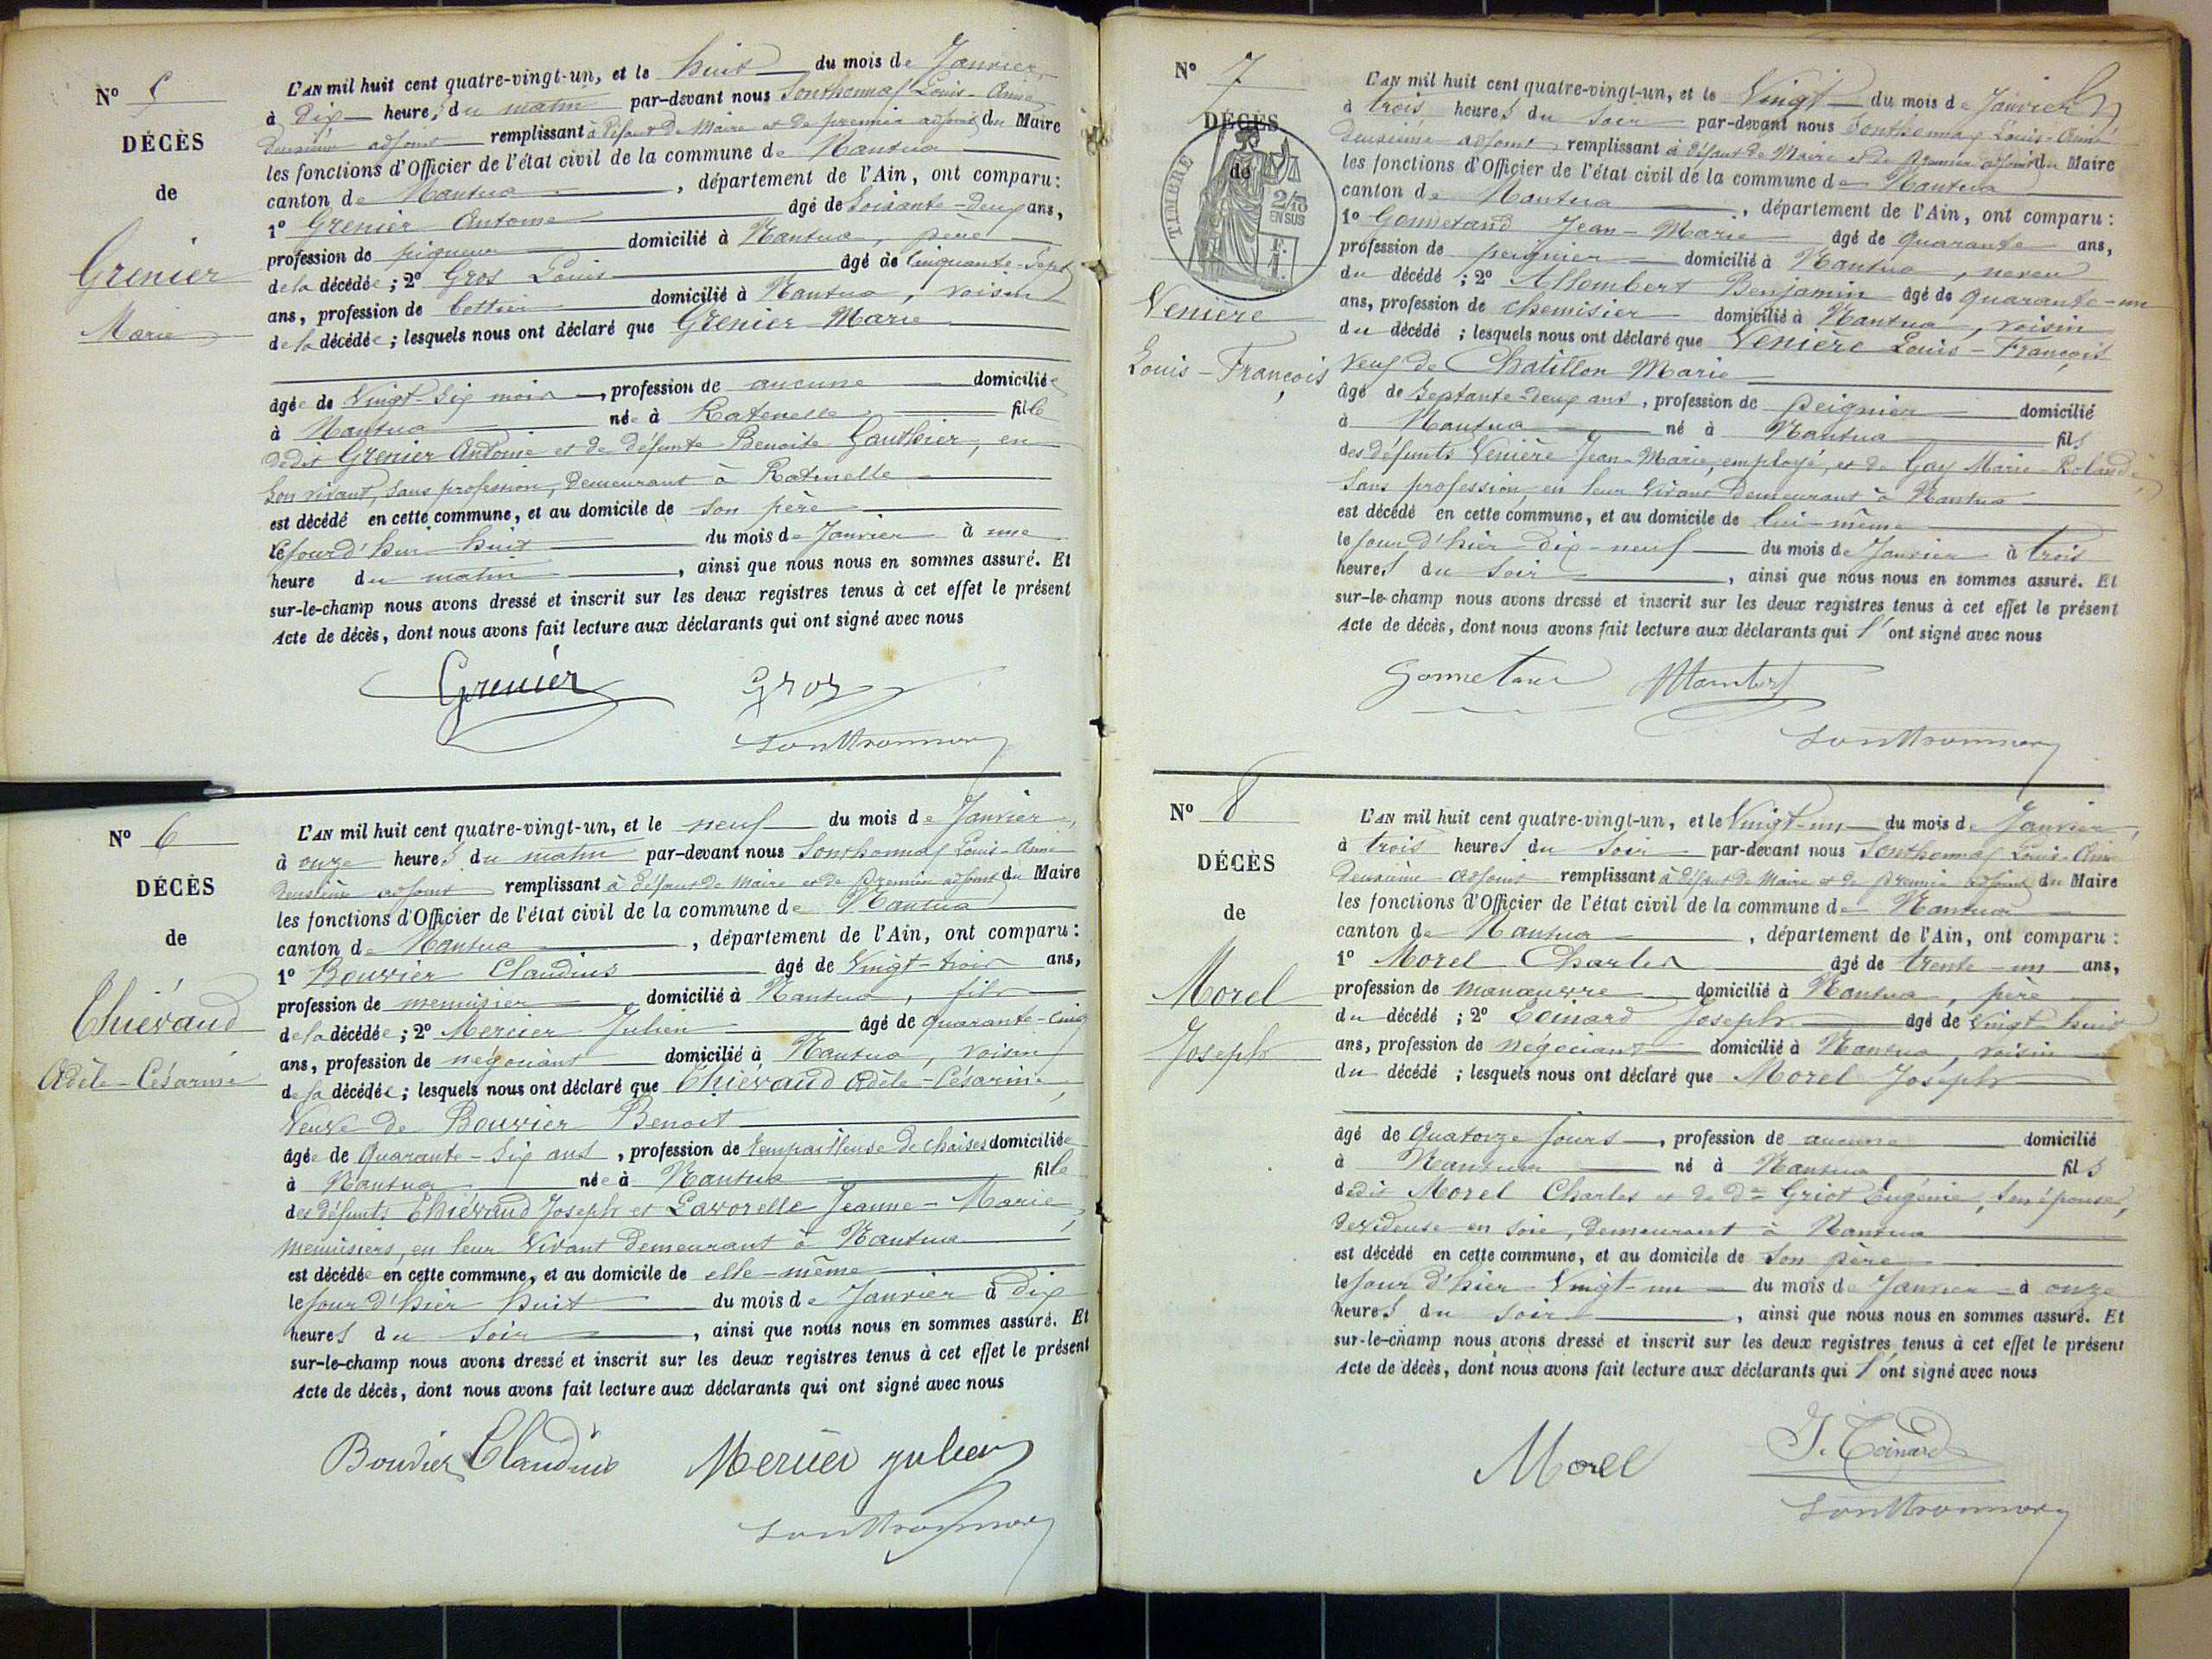 Nº 5
DÉCÈS
de
Grenier
Marie
L'AN mil huit cent quatre-vingt-un, et le huit du mois de Janvier,
à dix heures du matin par-devant nous Sonthonnax Louis-Aimé
deuxième adjoint remplissant à défaut de Maire et de premier adjoint du Maire
les fonctions d'Officier de l'état civil de la commune de Nantua
canton de Nantua, département de l'Ain, ont comparu:
1º Grenier Antoine âgé de Soixante-deux ans,
profession de piqueur domicilié à Nantua, père
de la décédée; 2º Gros Louis âgé de Cinquante-Sept
ans, profession de bottier domicilié à Nantua, voisin
de la décédée; lesquels nous ont déclaré que Grenier Marie
âgée de Vingt-Six mois, profession de aucune domiciliée
à Nantua née à Ratenelle fille
dudit Grenier Antoine et de défunte Benoite Gauthier, en
Son vivant, Sans profession, demeurant à Ratenelle
est décédé en cette commune, et au domicile de son père
le jourd'hui huit du mois de Janvier à une
heure du matin, ainsi que nous nous en sommes assuré. Et
sur-le-champ nous avons dressé et inscrit sur les deux registres tenus à cet effet le présent
Acte de décès, dont nous avons fait lecture aux déclarants qui ont signé avec nous
Grenier Gros
Sonthonnax
Nº 6
DÉCÈS
de
Thiévaud
Adèle-Césarine
L'AN mil huit cent quatre-vingt-un, et le neuf du mois de Janvier,
à onze heures du matin par-devant nous Sonthonnax Louis-Aimé
deuxième adjoint remplissant à défaut de Maire et de premier adjoint du Maire
les fonctions d'Officier de l'état civil de la commune de Nantua
canton de Nantua, département de l'Ain, ont comparu:
1º Bouvier Claudius âgé de Vingt-trois ans,
profession de menuisier domicilié à Nantua, fils
de la décédée; 2º Mercier Julien âgé de quarante-cinq
ans, profession de négociant domicilié à Nantua, voisin
de la décédée; lesquels nous ont déclaré que Thiévaud Adèle-Césarine,
Veuve de Bouvier Benoit
âgée de Quarante-Six ans, profession de rempailleuse de chaises domiciliée
à Nantua née à Nantua fille
des défunts Thiévaud Joseph et Lavorelle Jeanne-Marie,
menuisiers, en leur Vivant demeurant à Nantua
est décédée en cette commune, et au domicile de elle-même
le jour d'hier huit du mois de Janvier à dix
heures du Soir, ainsi que nous nous en sommes assuré. Et
sur-le-champ nous avons dressé et inscrit sur les deux registres tenus à cet effet le présent
Acte de décès, dont nous avons fait lecture aux déclarants qui ont signé avec nous
Bouvier Claudius Mercier Julien
Sonthonnax
Nº 7
DÉCÈS
de
TIMBRE
2/10
EN SUS
Venière
Louis-François
L'AN mil huit cent quatre-vingt-un, et le Vingt du mois de Janvier
à trois heures du Soir par-devant nous Sonthonnax Louis-Aimé
deuxième adjoint remplissant à défaut de Maire et de premier adjoint du Maire
les fonctions d'Officier de l'état civil de la commune de Nantua
canton de Nantua, département de l'Ain, ont comparu:
1º Gonnetand Jean-Marie âgé de quarante ans,
profession de peignier domicilié à Nantua, neveu
du décédé; 2º Allombert Benjamin âgé de quarante-un
ans, profession de chemisier domicilié à Nantua, voisin
du décédé; lesquels nous ont déclaré que Venière Louis-François,
Veuf de Chatillon Marie
âgé de Septante-deux ans, profession de peignier domicilié
à Nantua né à Nantua fils
des défunts Venière Jean-Marie, employé, et de Gay Marie-Rolande,
Sans profession, en leur Vivant demeurant à Nantua
est décédé en cette commune, et au domicile de lui-même
le jour d'hier dix-neuf du mois de Janvier à trois
heures du Soir, ainsi que nous nous en sommes assuré. Et
sur-le-champ nous avons dressé et inscrit sur les deux registres tenus à cet effet le présent
Acte de décès, dont nous avons fait lecture aux déclarants qui l'ont signé avec nous
Gonnetand Allombert
Sonthonnax
Nº 8
DÉCÈS
de
Morel
Joseph
L'AN mil huit cent quatre-vingt-un, et le Vingt-un du mois de Janvier,
à trois heures du Soir par-devant nous Sonthonnax Louis-Aimé
deuxième adjoint remplissant à défaut de Maire et de premier adjoint du Maire
les fonctions d'Officier de l'état civil de la commune de Nantua
canton de Nantua, département de l'Ain, ont comparu:
1º Morel Charles âgé de trente-un ans,
profession de manœuvre domicilié à Nantua, père
du décédé; 2º Coinard Joseph âgé de Vingt-huit
ans, profession de négociant domicilié à Nantua, voisin
du décédé; lesquels nous ont déclaré que Morel Joseph
âgé de Quatorze jours, profession de aucune domicilié
à Nantua né à Nantua fils
dudit Morel Charles et de de Griot Eugénie, Son épouse,
dévideuse en soie, demeurant à Nantua
est décédé en cette commune, et au domicile de Son père
le jour d'hier Vingt-un du mois de Janvier à onze
heures du Soir, ainsi que nous nous en sommes assuré. Et
sur-le-champ nous avons dressé et inscrit sur les deux registres tenus à cet effet le présent
Acte de décès, dont nous avons fait lecture aux déclarants qui l'ont signé avec nous
Morel J. Coinard
Sonthonnax